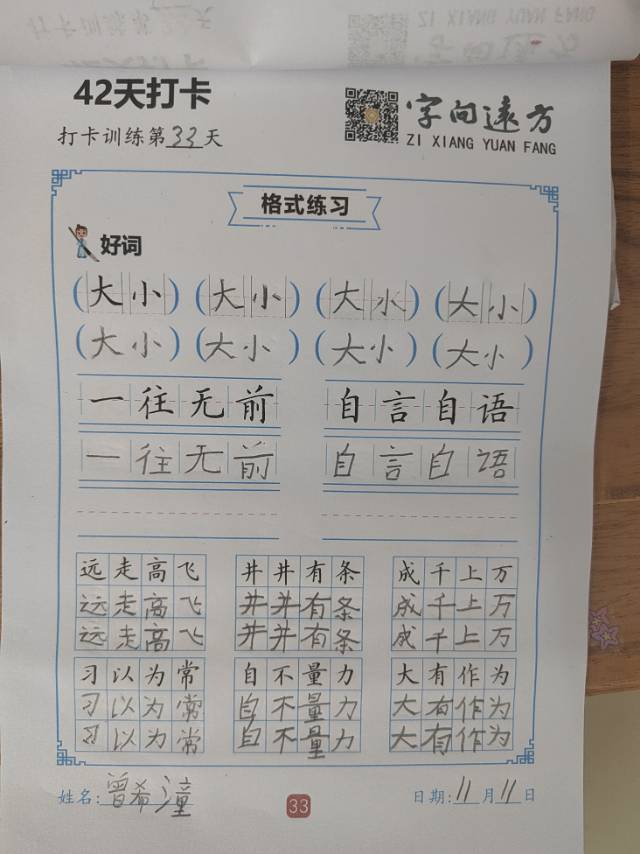 42天打卡
打卡训练第33天
字向远方
ZI XIANG YUAN FANG
格式练习
好词
(大小) (大小) (大水) (大小)
(大小) (大小) (大小) (大小)
一往无前 自言自语
一往无前 自言自语
远走高飞 井井有条 成千上万
远走高飞 井井有条 成千上万
远走高飞 井井有条 成千上万
习以为常 自不量力 大有作为
习以为常 自不量力 大有作为
习以为常 自不量力 大有作为
姓名:曾希潼 33 日期:11月11日